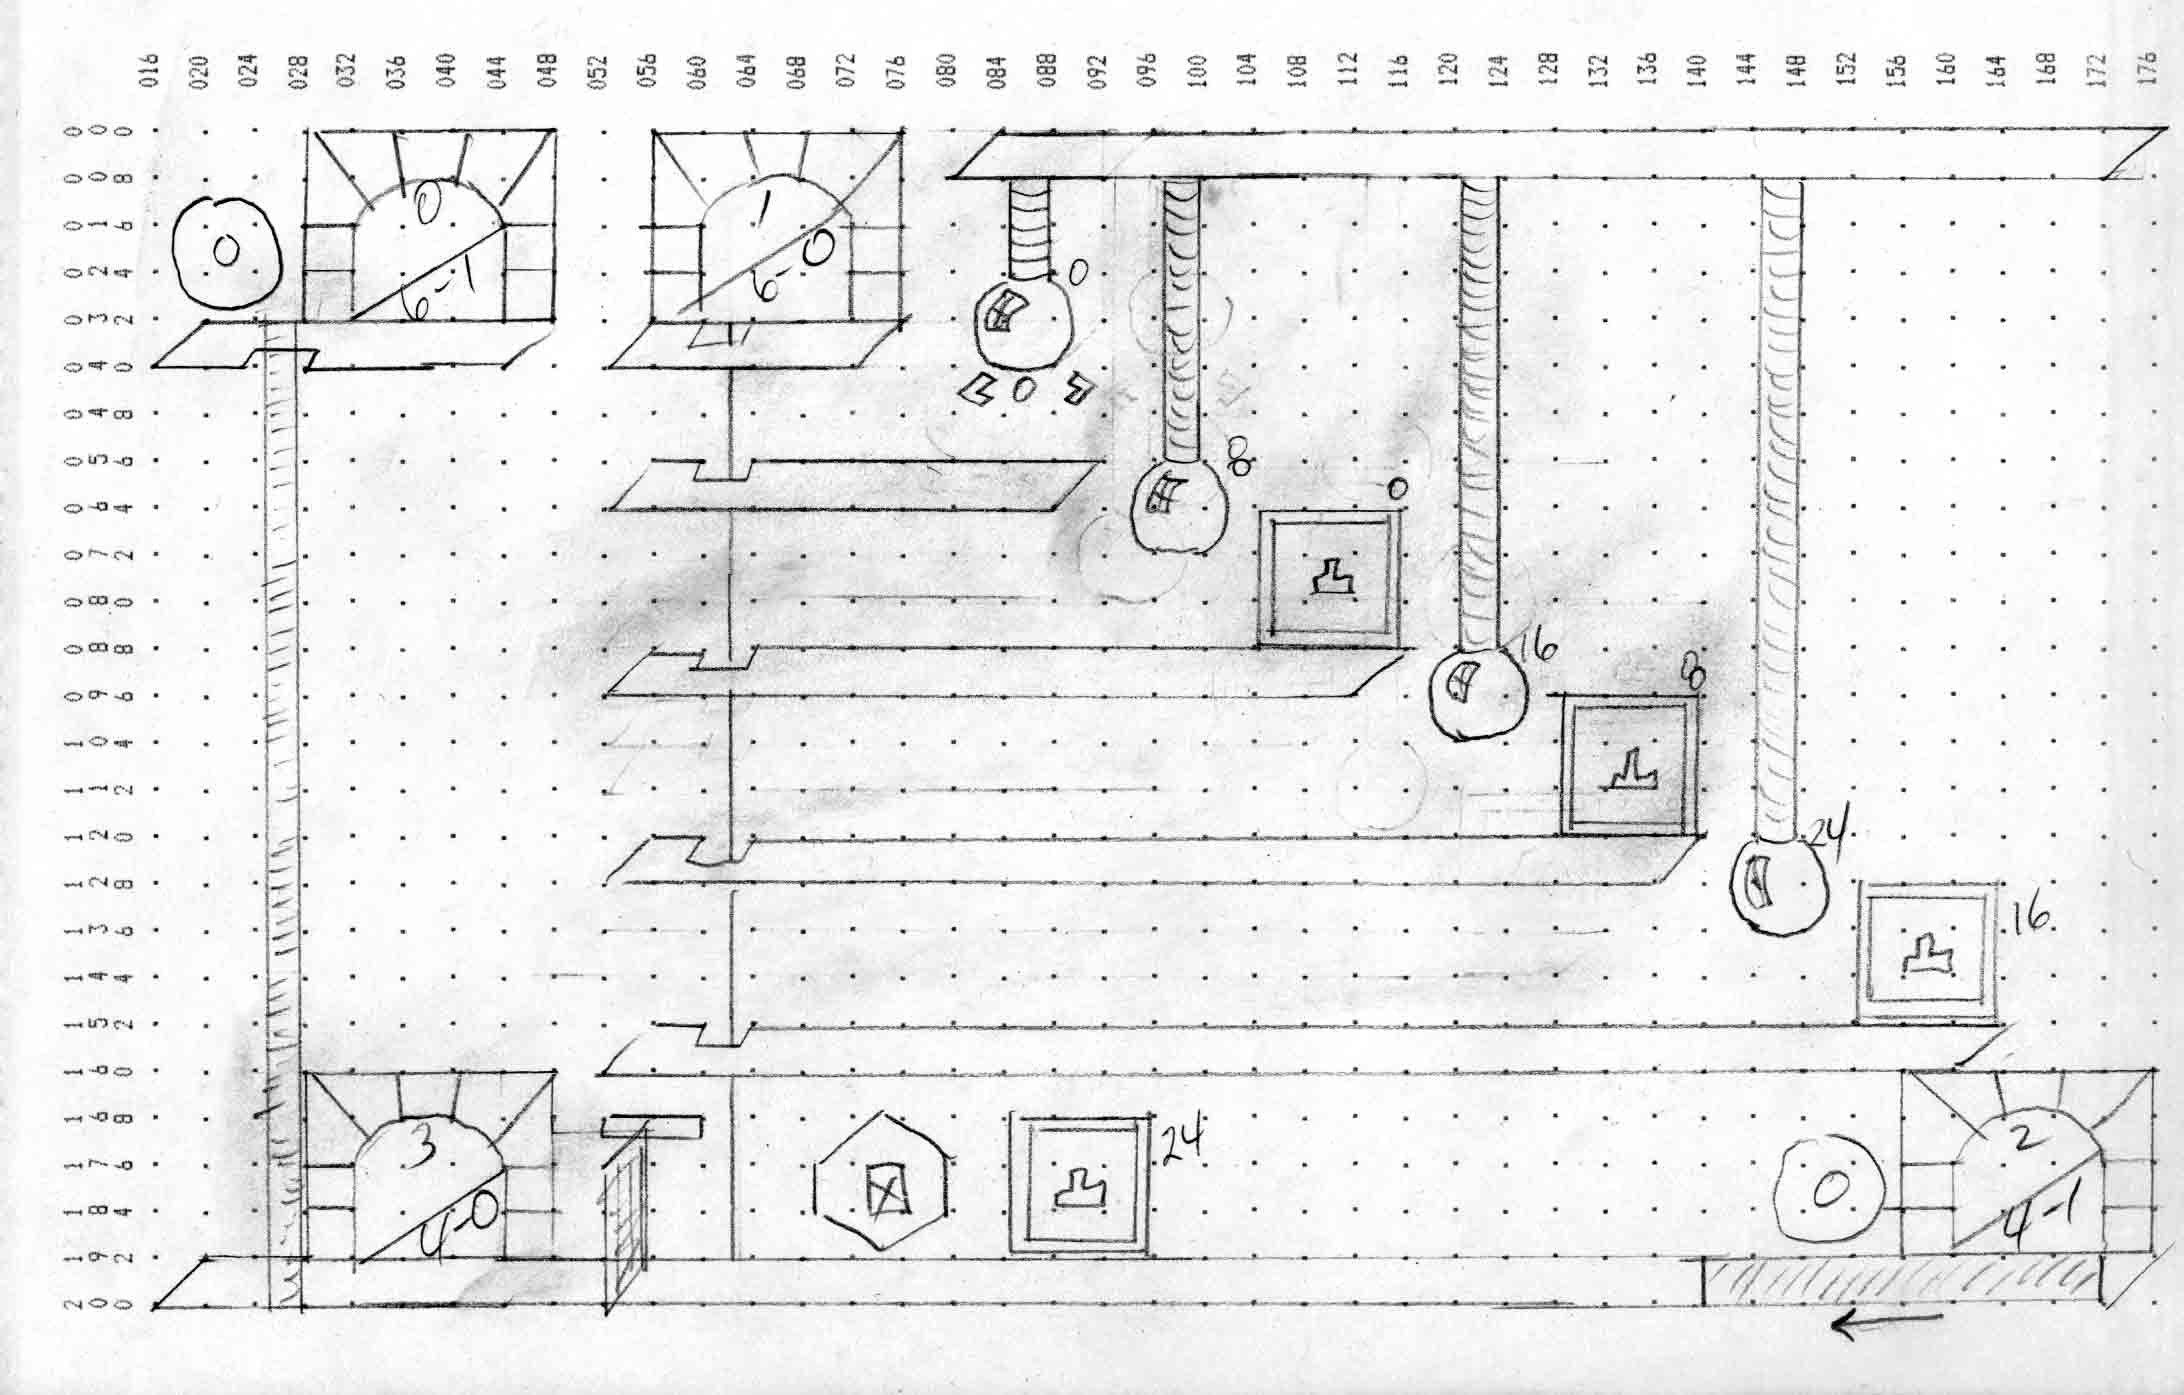 016 020 024 028 032 036 040 044 048 052 056 060 064 068 072 076 080 084 088 092 096 100 104 108 112 116 120 124 128 132 136 140 144 148 152 156 160 164 168 172 176
000
008
016
024
032
040
048
056
064
072
080
088
096
104
112
120
128
136
144
152
160
168
176
184
192
200
0
0
6-1
1
6-0
0
0
8
0
16
8
24
16
3
4-0
24
0
2
4-1